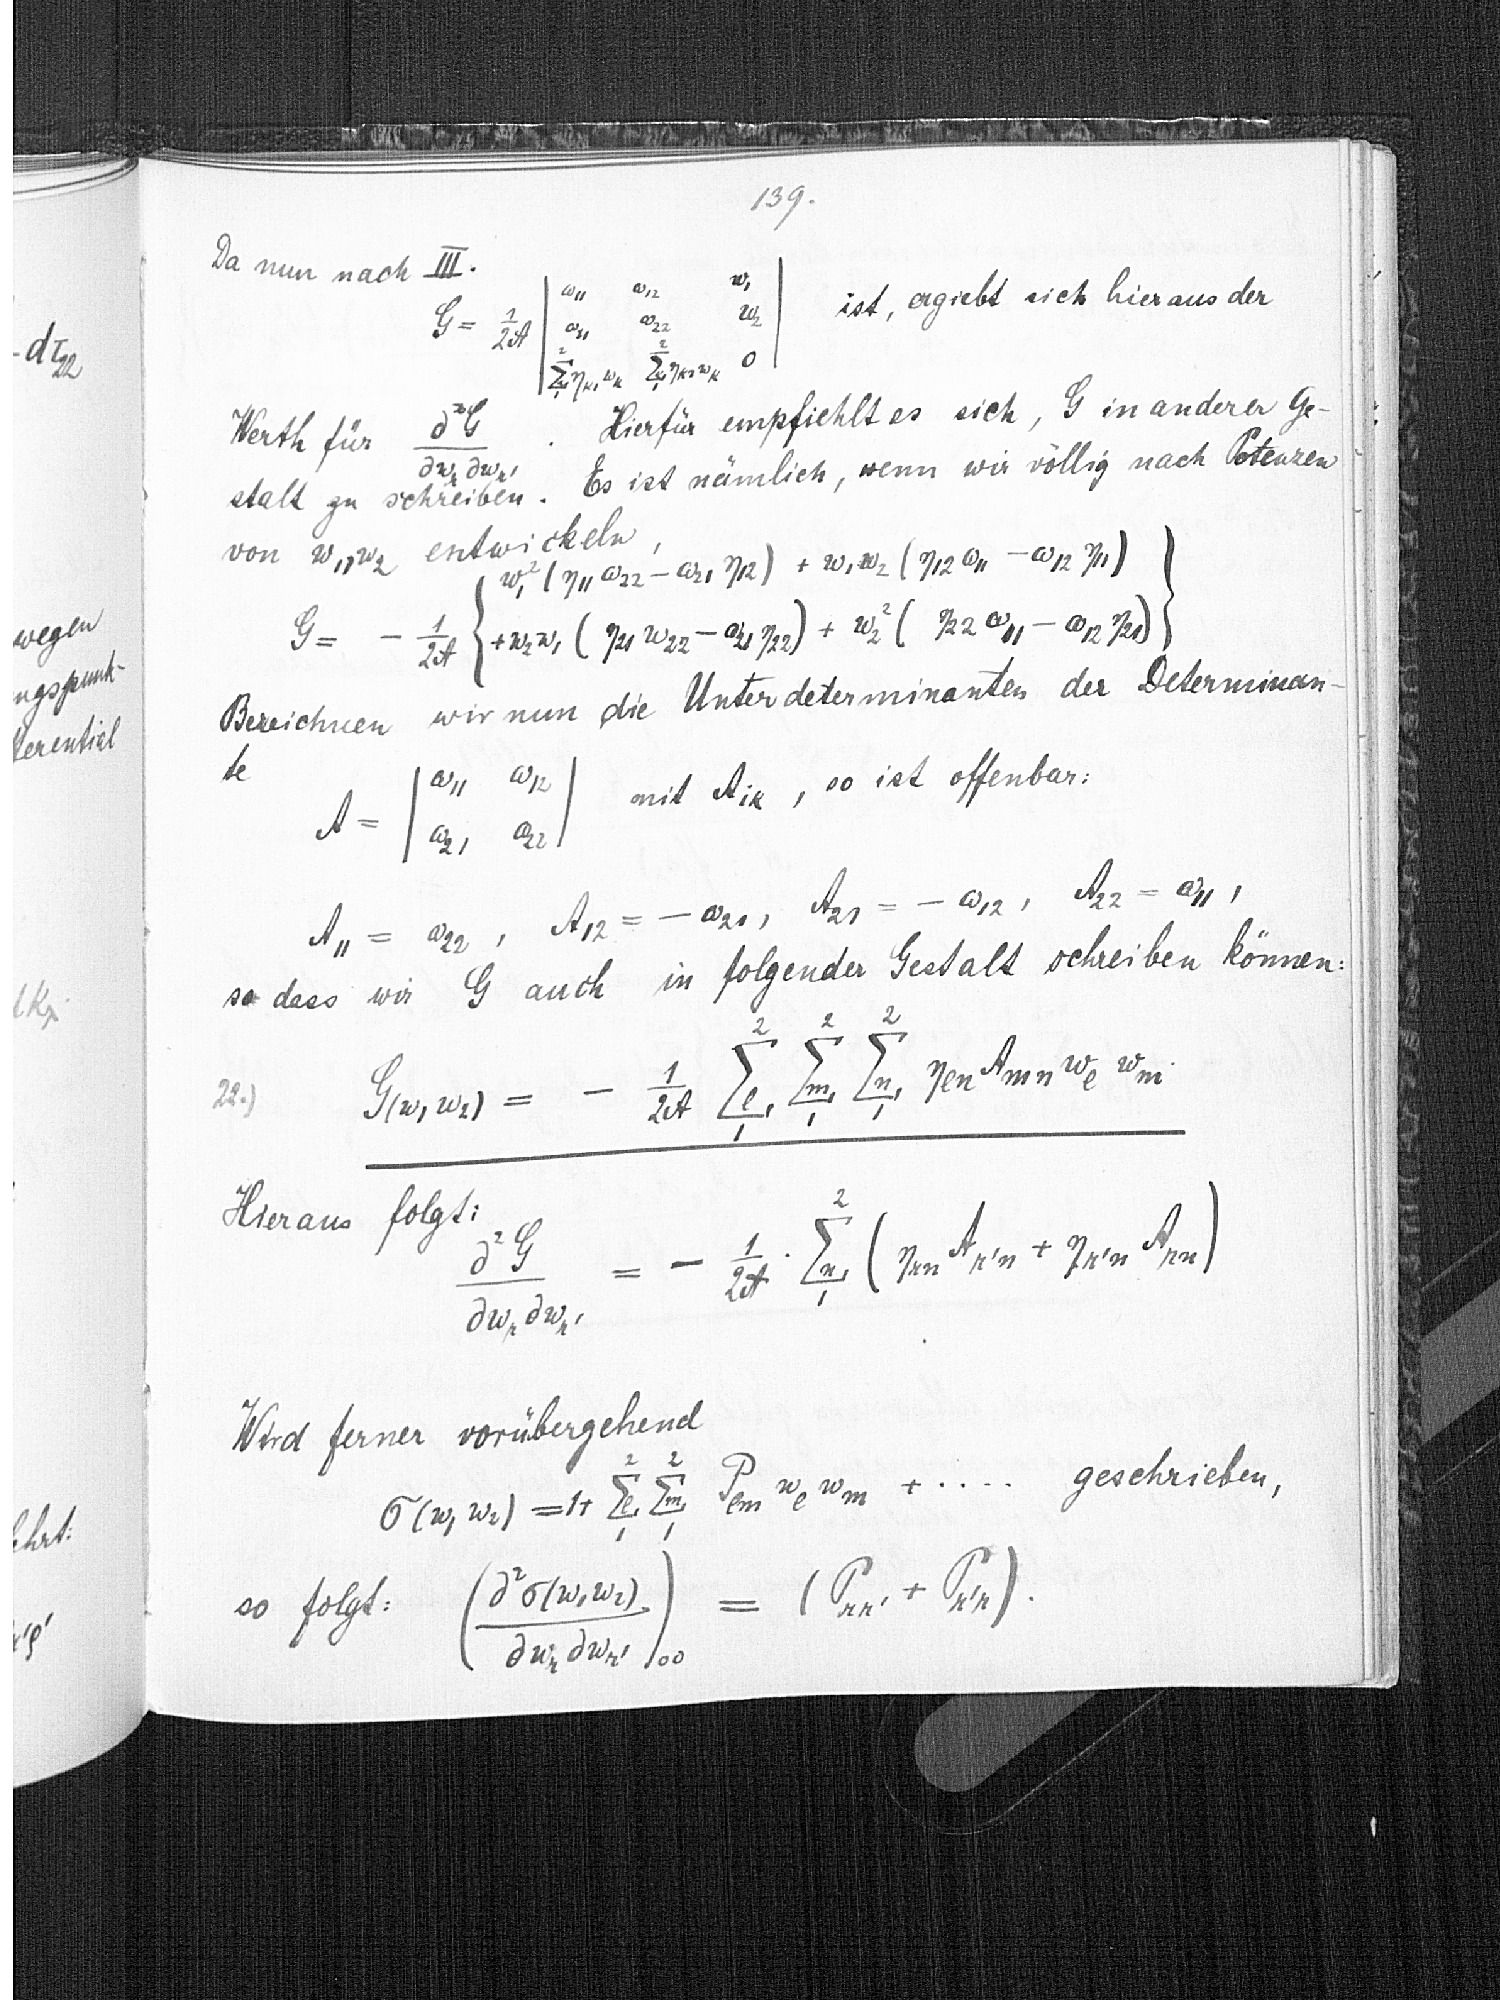 139.
Da nun nach III.
G = 1/2A | ω11 ω12 w1 | ω21 ω22 w2 | ²Σk₁ ηk1 wk ²Σk₁ ηk2 wk 0 | ist, ergiebt sich hieraus der
Werth für ∂²G/∂wr ∂wr' . Hierfür empfiehlt es sich, G in anderer Ge-
stalt zu schreiben. Es ist nämlich, wenn wir völlig nach Potenzen
von w1, w2 entwickeln,
G = - 1/2A { w1² (η11 ω22 - ω21 η12) + w1 w2 (η12 ω11 - ω12 η11)
+ w2 w1 (η21 ω22 - ω21 η22) + w2² (η22 ω11 - ω12 η21) }
Bezeichnen wir nun die Unterdeterminanten der Determinan-
te
A = | ω11 ω12 | ω21 ω22 | mit Aik, so ist offenbar:
A11 = ω22, A12 = - ω21, A21 = - ω12, A22 = ω11,
so dass wir G auch in folgender Gestalt schreiben können:
22.) G(w1 w2) = - 1/2A ²Σe₁ ²Σm₁ ²Σn₁ ηen Amn we wm.
Hieraus folgt:
∂²G/∂wr ∂wr' = - 1/2A · ²Σn₁ (ηrn Ar'n + ηr'n Arn)
Wird ferner vorübergehend
σ(w1 w2) = 1 + ²Σe₁ ²Σm₁ Pem we wm + ..... geschrieben,
so folgt: (∂²σ(w1 w2)/∂wr ∂wr')00 = (Prr' + Pr'r).
- dτ22
wegen
ngspunk-
ferential
ehrt: